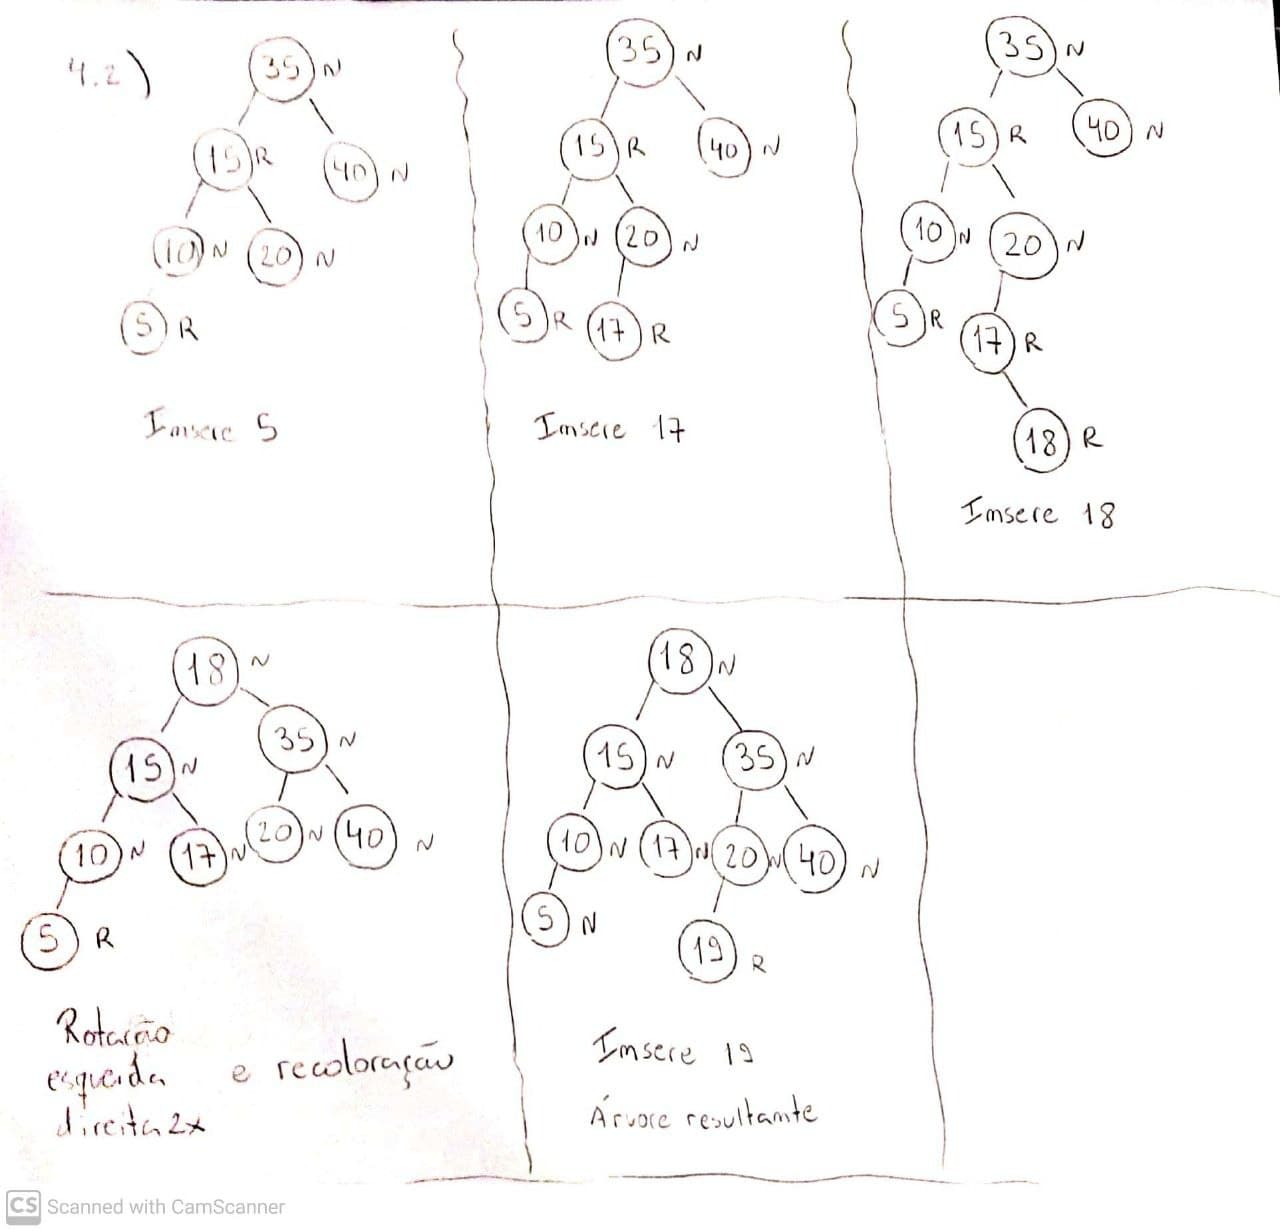 4.2)
35 N
15 R
40 N
10 N 20 N
5 R
Imsere 5
35 N
15 R 40 N
10 N 20 N
5 R 17 R
Imsere 17
35 N
15 R 40 N
10 N 20 N
5 R 17 R
18 R
Imsere 18
18 N
35 N
15 N
10 N 17 N 20 N 40 N
5 R
Rotação
esqueida e recoloração
direita 2x
18 N
15 N 35 N
10 N 17 N 20 N 40 N
5 N
19 R
Imsere 19
Árvore resultamte
CS Scanned with CamScanner